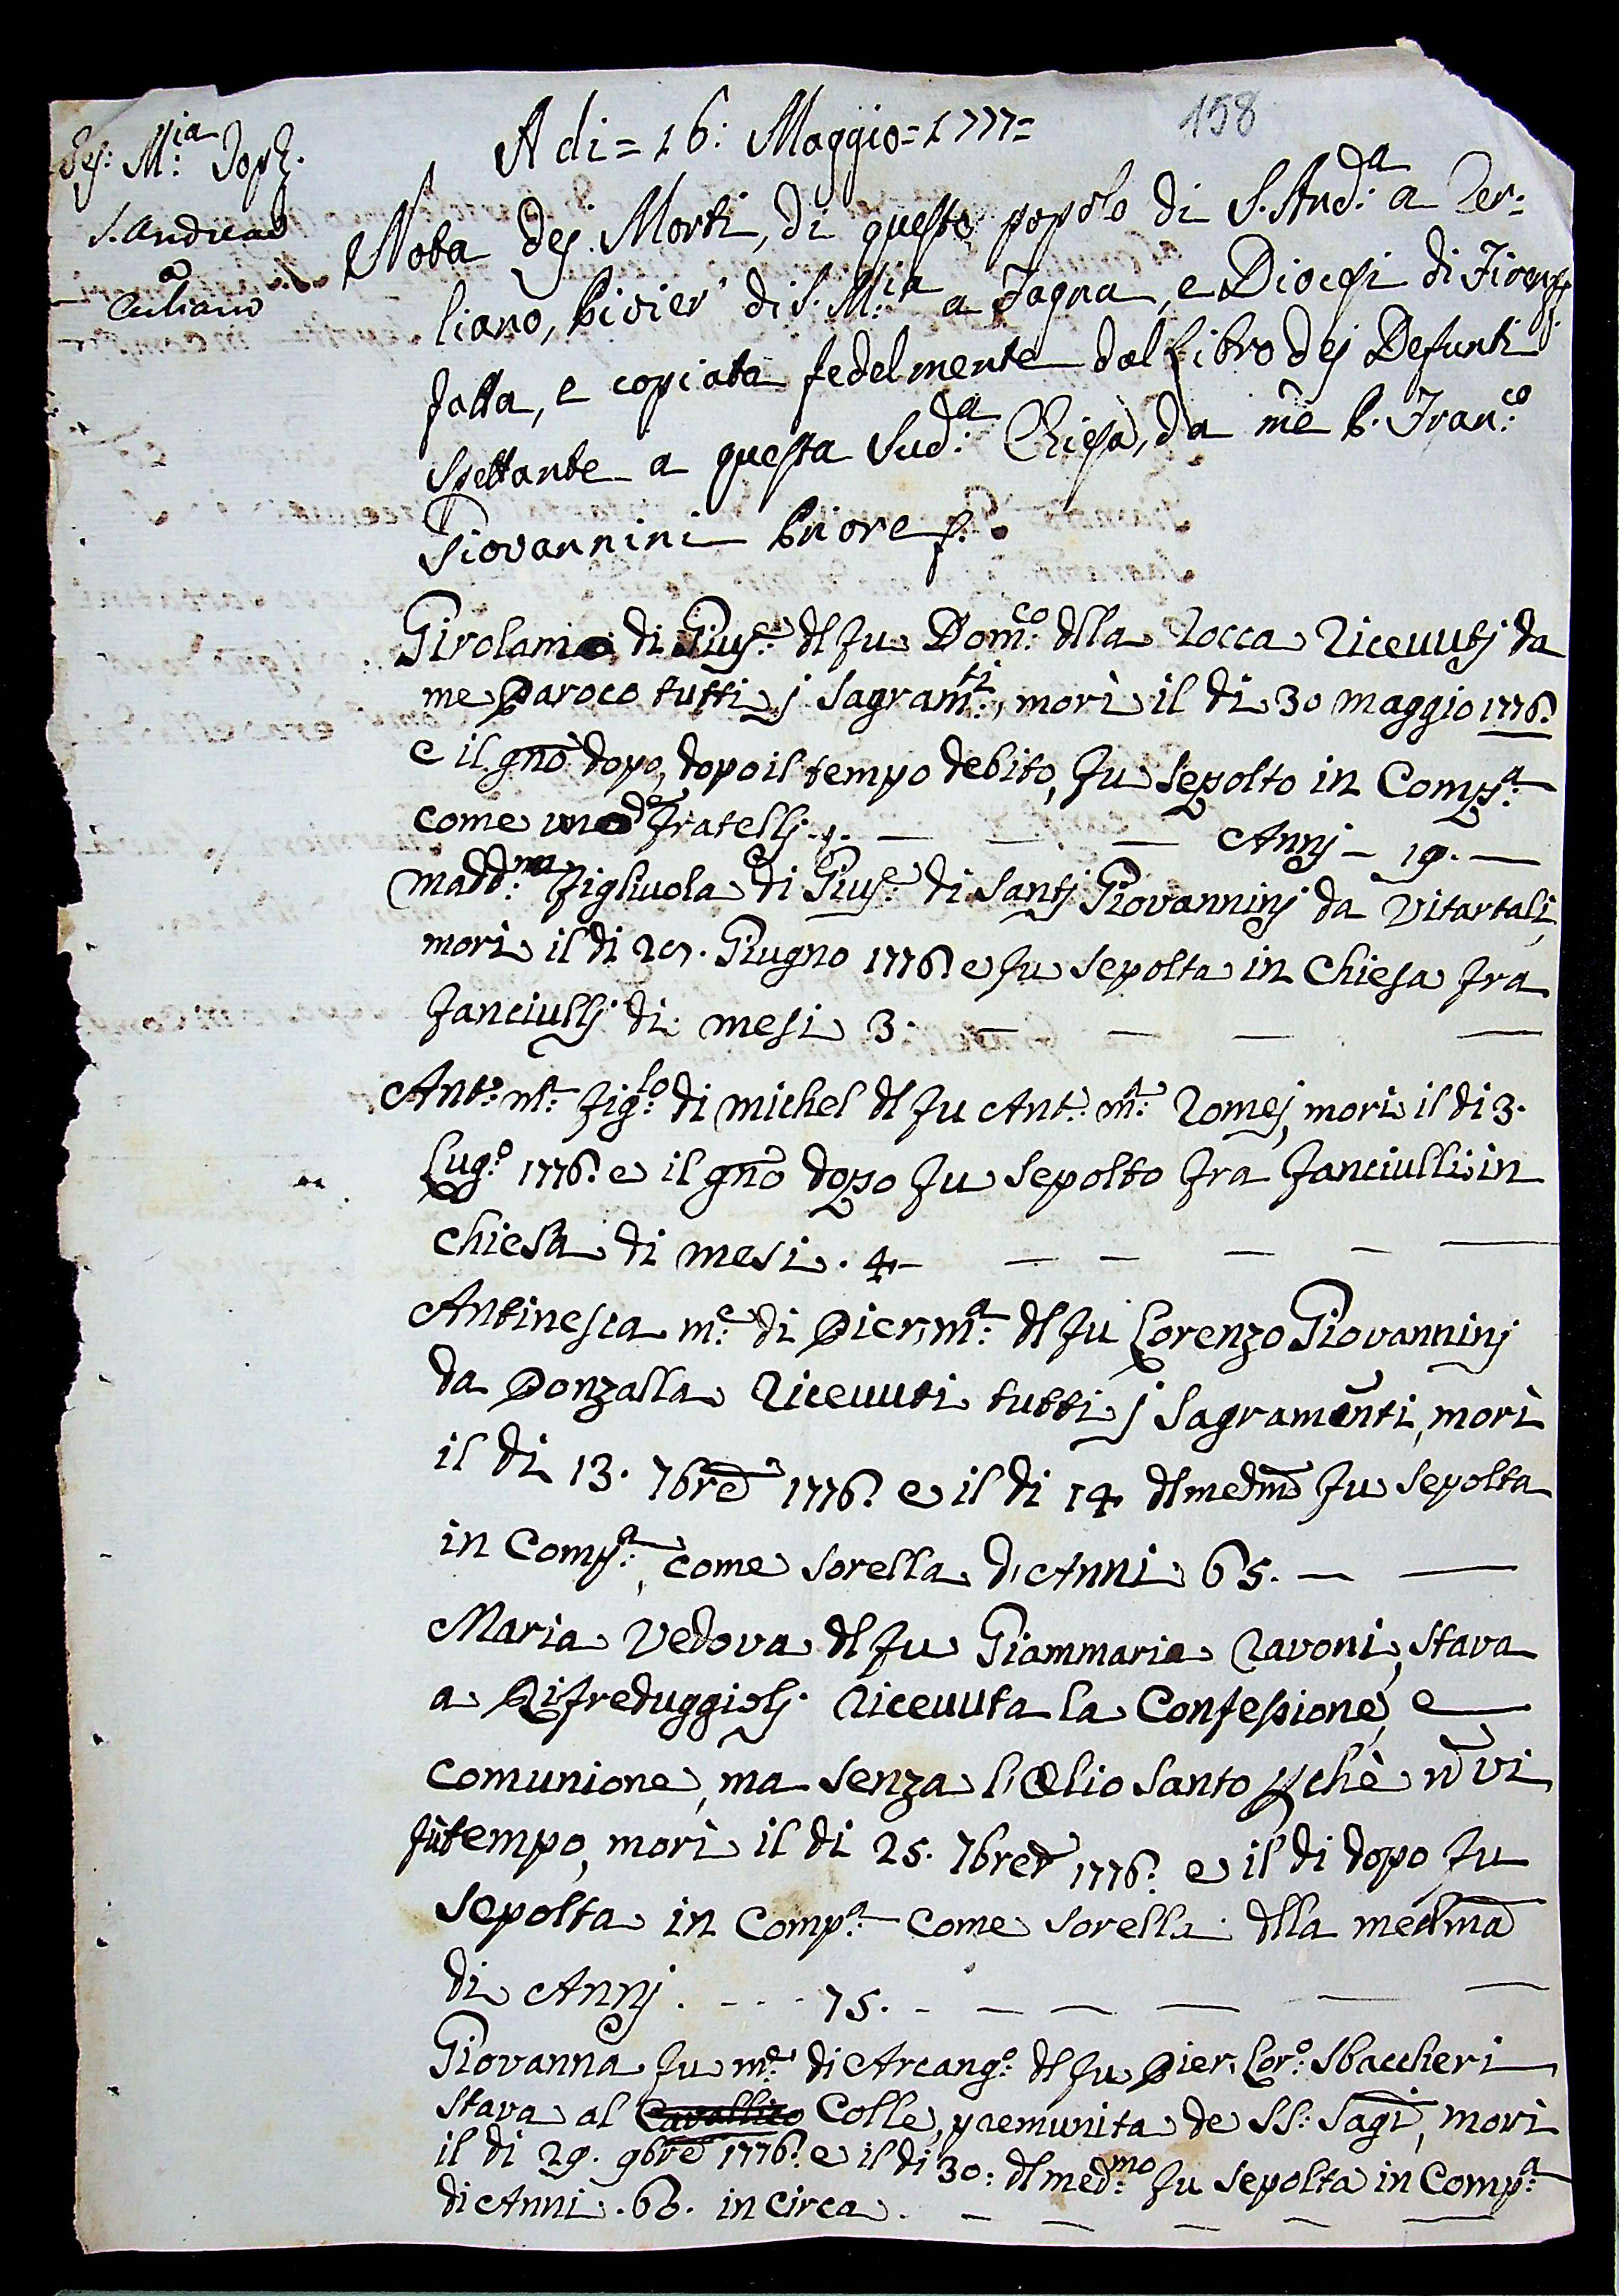 158
Jes: M:ia Josph.
S. Andrea
a
Cerliano
A di = 16: Maggio = 1777 =
Nota dej Morti, di questo popolo di S. And:a a Cer=
liano, Pivier' di S. M:ia a Fagna, e Diocesi di Firenze
fatta, e copiata fedelmente dal Libro dej Defunti
spettante a questa Sud:a Chiesa, da me P. Fran:co
Giovannini Priore
Girolamo di Gius:e dl fu Dom:co dlla Rocca Ricevutj da
me Paroco tutti j Sagram:ti, morì il dì 30 maggio 1776.
e il gno dopo, dopo il tempo debito, fu Sepolto in Comp:a
come uno d Fratellj. — — — Annj — 19. —
Madd:na Figliuola di Gius:e di Santj Giovanninj da Vitartali,
morì il dì 27. Giugno 1776. e fu Sepolta in Chiesa fra
Fanciullj di mesi 3. — — — —
Ant:o M:a Fig:lo di Michel dl fu Ant:o M:a Romej, morì il dì 3.
Lug:o 1776. e il gno dopo fu Sepolto fra Fanciulli in
Chiesa di mesi. 4 — — — — —
Antinesca m:e di Pier m:a dl fu Lorenzo Giovanninj
da Ponzalla Ricevuti tutti j Sagramenti, morì
il dì 13. 7bre 1776. e il dì 14 dl medmo fu Sepolta
in Comp:a, come Sorella d'Anni 65. — —
Maria Vedova dl fu Giammaria Ravoni, stava
a Rifreduggiolj. Ricevuta la Confessione, e
comunione, ma senza l'Olio Santo pchè n vi
fù tempo, morì il dì 25. 7bre 1776. e il dì dopo fu
Sepolta in Comp:a come Sorella dlla medma
di Annj . - - - 75. - — — — — —
Giovanna fu m:e di Arcang:o dl fu Pier Lor:o Sbaccheri
stava al Cavallico Colle, premunita de SS: Sagi, morì
il dì 29. 9bre 1776. e il dì 30: dl med:mo fu Sepolta in Comp:a
di Anni. 68. in circa. — — — — —